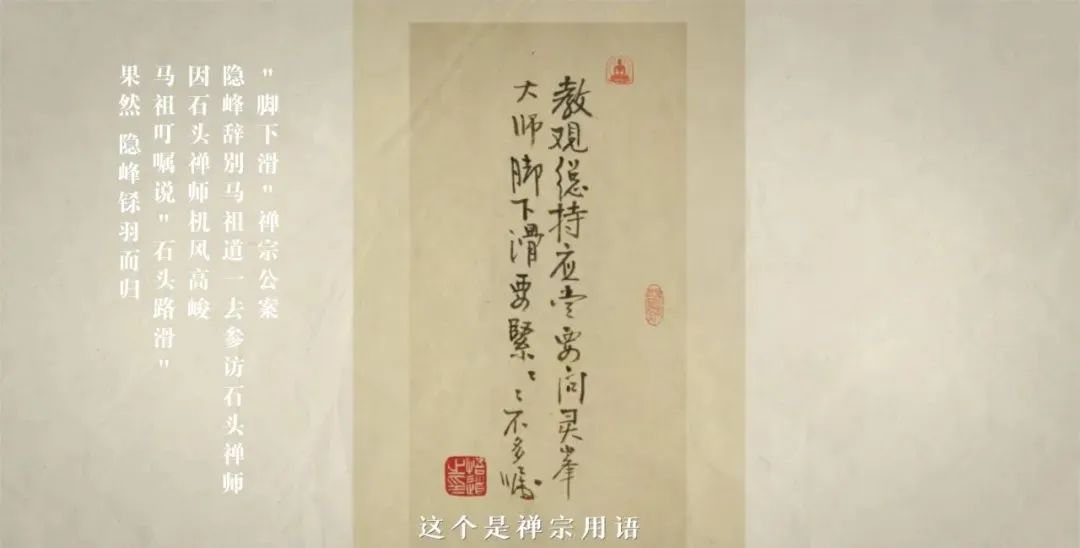 "脚下滑"禅宗公案
隐峰辞别马祖道一去参访石头禅师
因石头禅师机风高峻
马祖叮嘱说"石头路滑"
果然 隐峰铩羽而归
教观总持应当要问灵峰
大师脚下滑要緊〻〻不多嘱
这个是禅宗用语